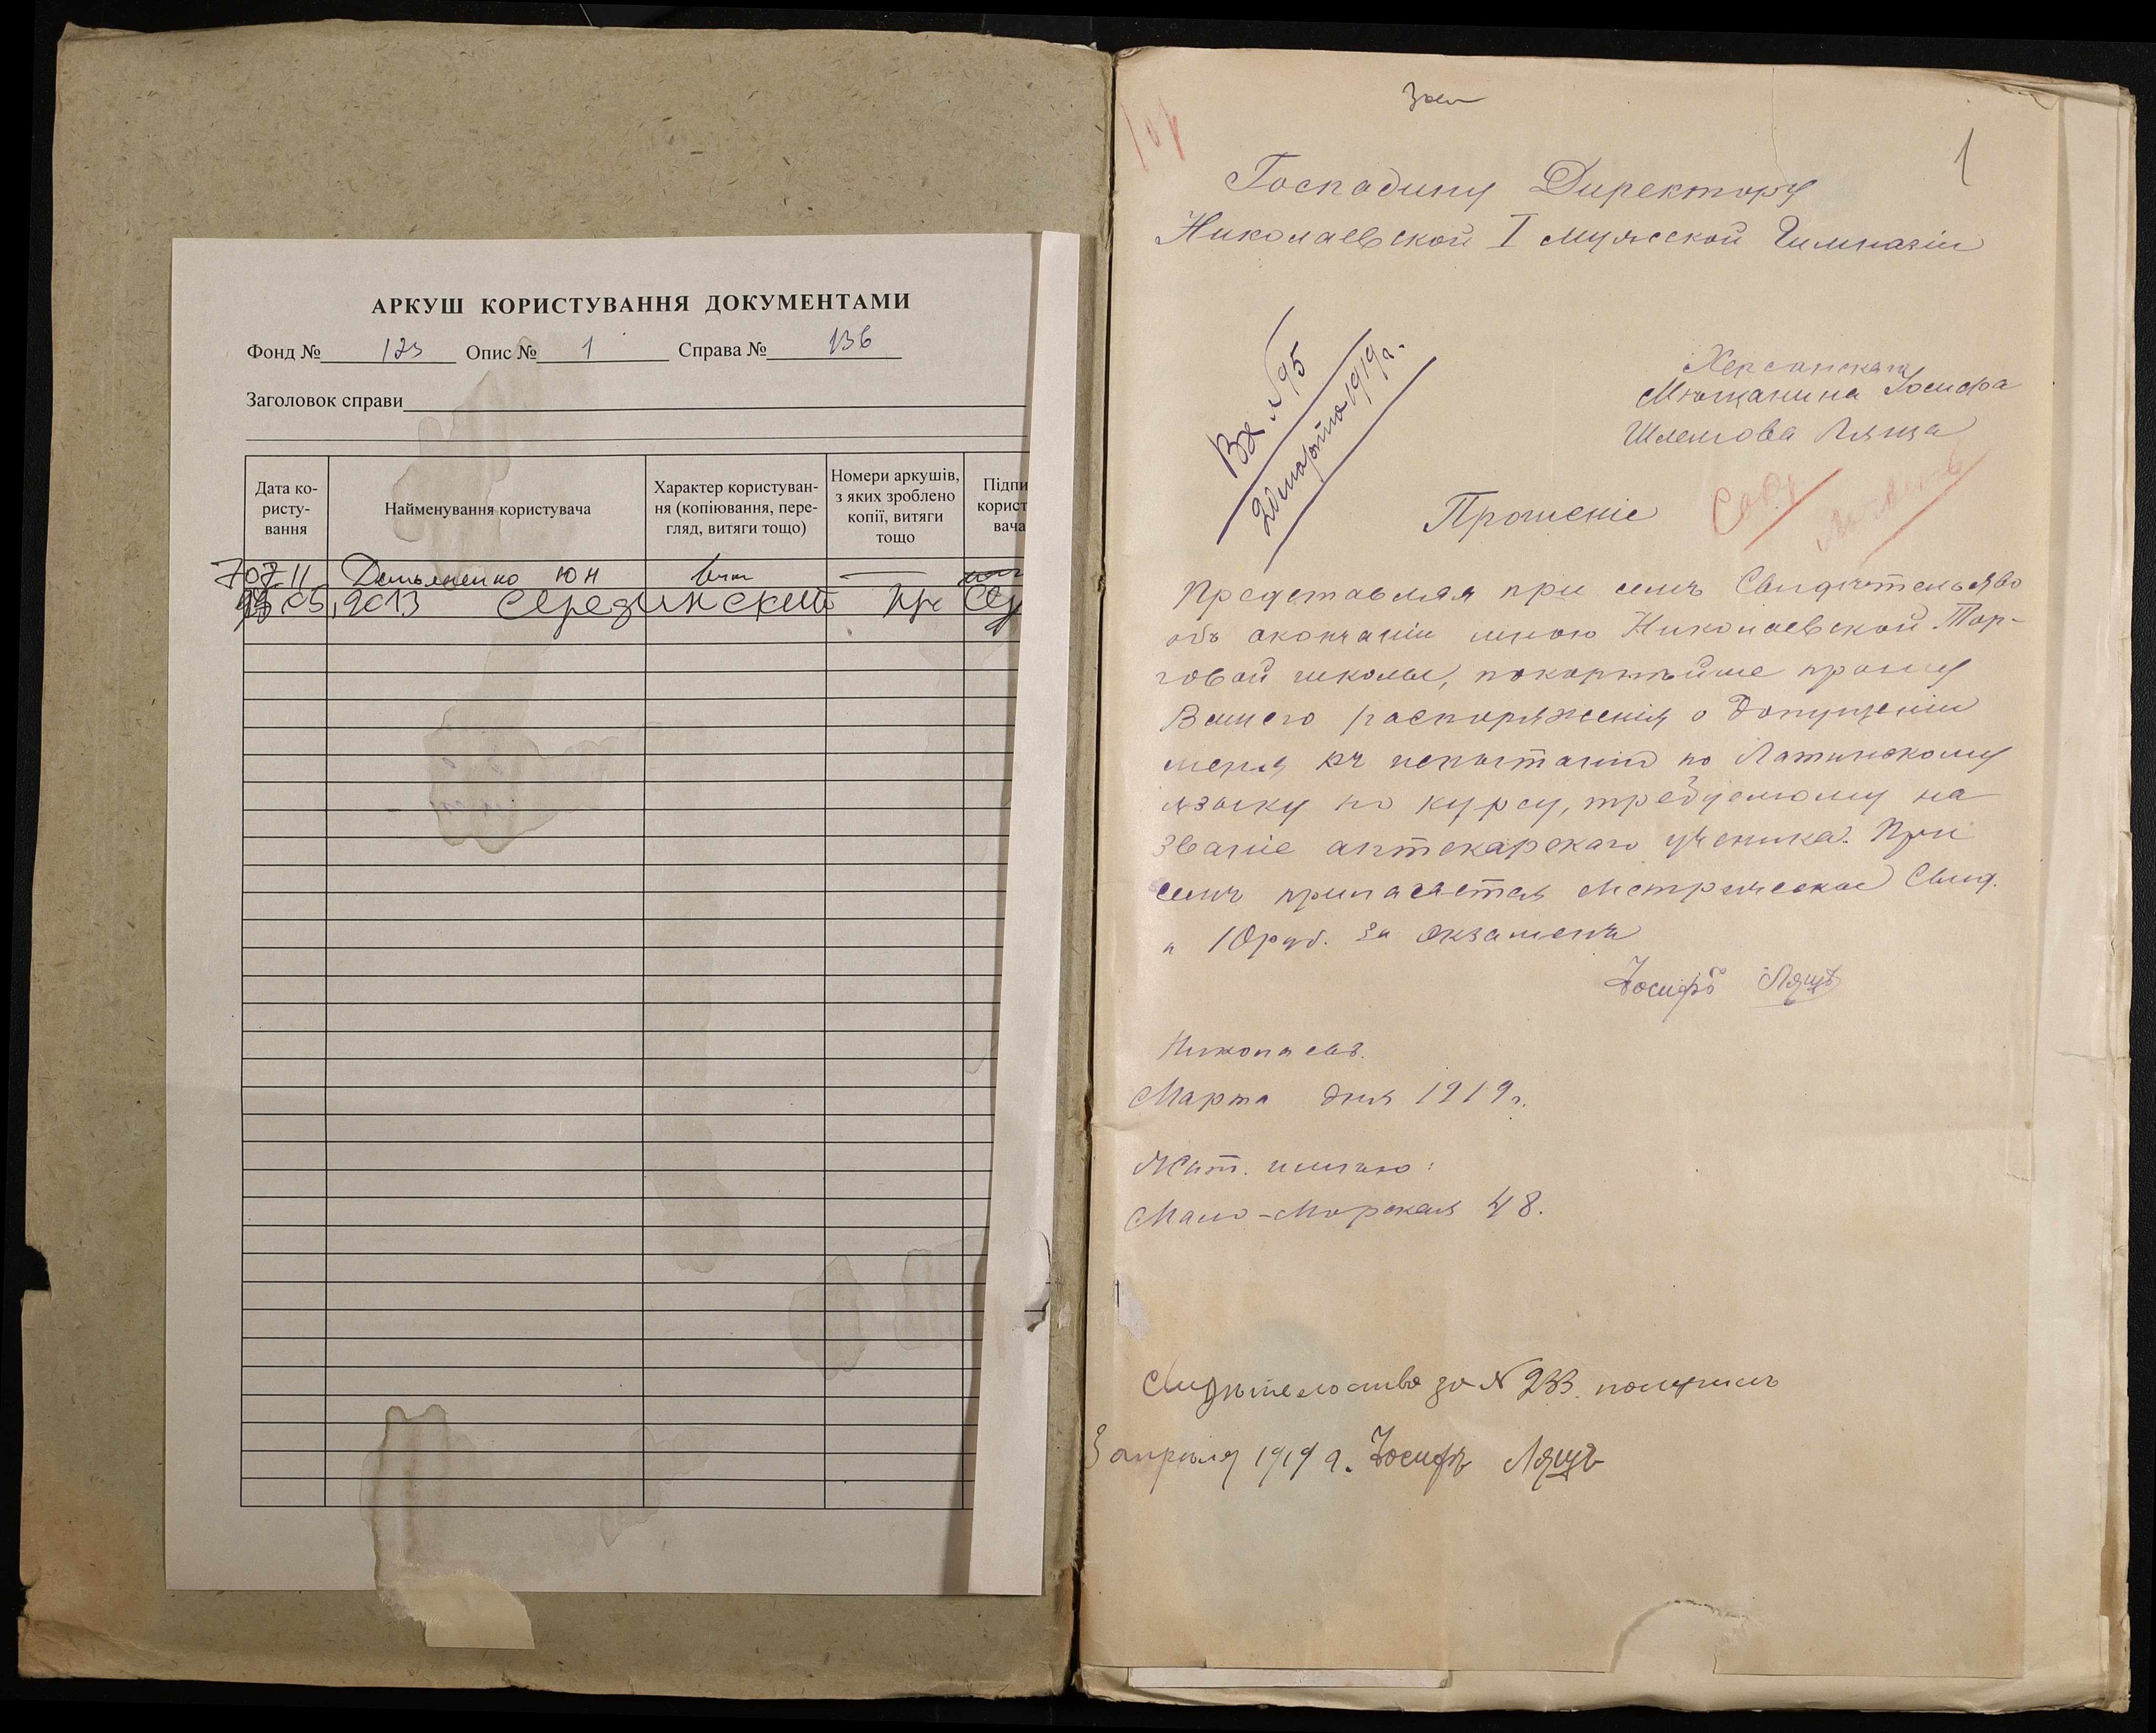 АРКУШ КОРИСТУВАННЯ ДОКУМЕНТАМИ
Фонд № 123 Опис № 1 Справа № 136
Заголовок справи
Дата ко-
ристу-
вання
Найменування користувача
Характер користуван-
ня (копіювання, пере-
гляд, витяги тощо)
Номери аркушів,
з яких зроблено
копії, витяги
тощо
Підпи
корист
вача
Демьяненко ЮН
05,2013 Середински
1
Господину Директору
Николаевской I мужской Гимназіи
Вх № 95
марта 1919 г.
Херсонскаго
Мѣщанина Іосифа
Шлемова Ляща
Прошеніе
Представляя при семъ Свидѣтельство
объ окончаніи мною Николаевской Тор-
говой школы, покорнѣйше прошу
Вашего распоряженія о допущеніи
меня къ испытанію по Латинскому
языку по курсу, требуемому на
званіе аптекарскаго ученика. При
семъ прилагается Метрическое Свид.
и 10 руб. за экзаменъ
Іосифъ Лящъ
Николаевъ.
Марта дня 1919 г.
Жит. имѣю:
Мало-Морская 48.
Свидѣтельство за № 233. получилъ
3 апрѣля 1919 г. Іосифъ Лящъ